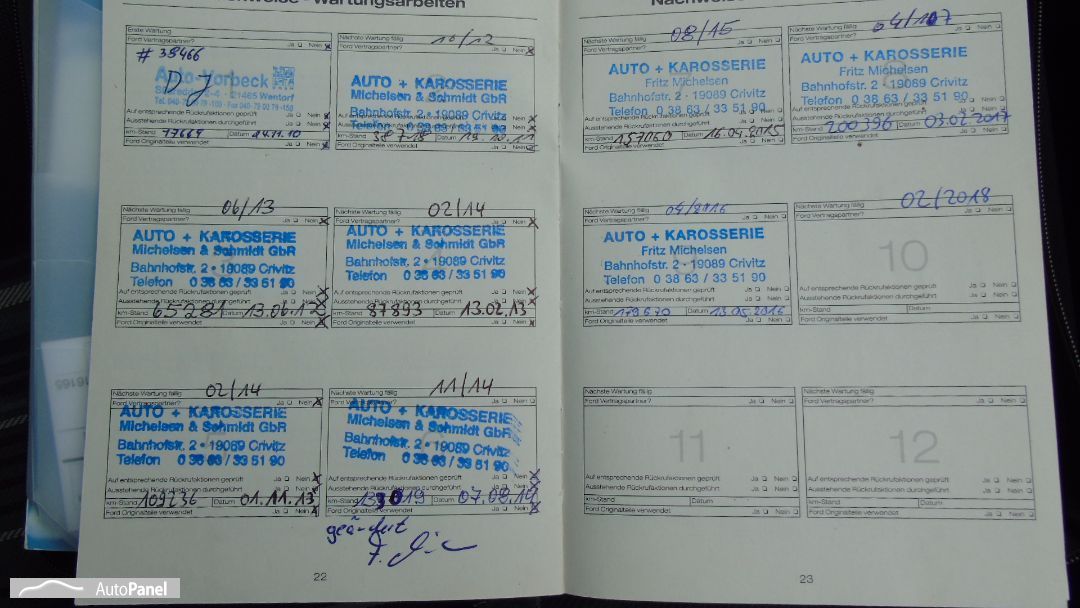 Wartungsarbeiten
Erste Wartung
Ford Vertragspartner? Ja Nein
# 38466
Auto-Vorbeck
21465 Wentorf
Auf entsprechende Rückrufaktionen geprüft Ja Nein
Ausstehende Rückrufaktionen durchgeführt Ja Nein
km-Stand Datum
Ford Originalteile verwendet Ja Nein
Nächste Wartung fällig 10/12
Ford Vertragspartner? Ja Nein
AUTO + KAROSSERIE
Michelsen & Schmidt GbR
Bahnhofstr. 2 • 19089 Crivitz
Telefon 0 38 63 / 33 51 90
km-Stand Datum
Ford Originalteile verwendet Ja Nein
Nächste Wartung fällig 06/13
Ford Vertragspartner? Ja Nein
AUTO + KAROSSERIE
Michelsen & Schmidt GbR
Bahnhofstr. 2 • 19089 Crivitz
Telefon 0 38 63 / 33 51 90
Auf entsprechende Rückrufaktionen geprüft Ja Nein
Ausstehende Rückrufaktionen durchgeführt Ja Nein
km-Stand 65281 Datum 13.06.12
Ford Originalteile verwendet Ja Nein
Nächste Wartung fällig 02/14
Ford Vertragspartner? Ja Nein
AUTO + KAROSSERIE
Michelsen & Schmidt GbR
Bahnhofstr. 2 • 19089 Crivitz
Telefon 0 38 63 / 33 51 90
Auf entsprechende Rückrufaktionen geprüft Ja Nein
Ausstehende Rückrufaktionen durchgeführt Ja Nein
km-Stand 87893 Datum 13.02.13
Ford Originalteile verwendet Ja Nein
Nächste Wartung fällig 02/14
Ford Vertragspartner? Ja Nein
AUTO + KAROSSERIE
Michelsen & Schmidt GbR
Bahnhofstr. 2 • 19089 Crivitz
Telefon 0 38 63 / 33 51 90
Auf entsprechende Rückrufaktionen geprüft Ja Nein
Ausstehende Rückrufaktionen durchgeführt Ja Nein
km-Stand 109236 Datum 01.11.13
Ford Originalteile verwendet Ja Nein
Nächste Wartung fällig 11/14
Ford Vertragspartner? Ja Nein
AUTO + KAROSSERIE
Michelsen & Schmidt GbR
Bahnhofstr. 2 • 19089 Crivitz
Telefon 0 38 63 / 33 51 90
Auf entsprechende Rückrufaktionen geprüft Ja Nein
Ausstehende Rückrufaktionen durchgeführt Ja Nein
km-Stand Datum 07.08.14
Ford Originalteile verwendet Ja Nein
geändert
22
Nächste Wartung fällig 08/15
Ford Vertragspartner? Ja Nein
AUTO + KAROSSERIE
Fritz Michelsen
Bahnhofstr. 2 · 19089 Crivitz
Telefon 0 38 63 / 33 51 90
Auf entsprechende Rückrufaktionen geprüft Ja Nein
Ausstehende Rückrufaktionen durchgeführt Ja Nein
km-Stand Datum 16.04.2015
Ford Originalteile verwendet Ja Nein
Nächste Wartung fällig
Ford Vertragspartner? Ja Nein
AUTO + KAROSSERIE
Fritz Michelsen
Bahnhofstr. 2 · 19089 Crivitz
Telefon 0 38 63 / 33 51 90
Auf entsprechende Rückrufaktionen geprüft Ja Nein
Ausstehende Rückrufaktionen durchgeführt Ja Nein
km-Stand 200396 Datum 03.02.2017
Ford Originalteile verwendet Ja Nein
Nächste Wartung fällig 04/2016
Ford Vertragspartner? Ja Nein
AUTO + KAROSSERIE
Fritz Michelsen
Bahnhofstr. 2 · 19089 Crivitz
Telefon 0 38 63 / 33 51 90
Auf entsprechende Rückrufaktionen geprüft Ja Nein
Ausstehende Rückrufaktionen durchgeführt Ja Nein
km-Stand 179670 Datum 13.05.2016
Ford Originalteile verwendet Ja Nein
Nächste Wartung fällig 02/2018
Ford Vertragspartner? Ja Nein
10
Auf entsprechende Rückrufaktionen geprüft Ja Nein
Ausstehende Rückrufaktionen durchgeführt Ja Nein
km-Stand Datum
Ford Originalteile verwendet Ja Nein
Nächste Wartung fällig
Ford Vertragspartner? Ja Nein
11
Auf entsprechende Rückrufaktionen geprüft Ja Nein
Ausstehende Rückrufaktionen durchgeführt Ja Nein
km-Stand Datum
Ford Originalteile verwendet Ja Nein
Nächste Wartung fällig
Ford Vertragspartner? Ja Nein
12
Auf entsprechende Rückrufaktionen geprüft Ja Nein
Ausstehende Rückrufaktionen durchgeführt Ja Nein
km-Stand Datum
Ford Originalteile verwendet Ja Nein
23
AutoPanel